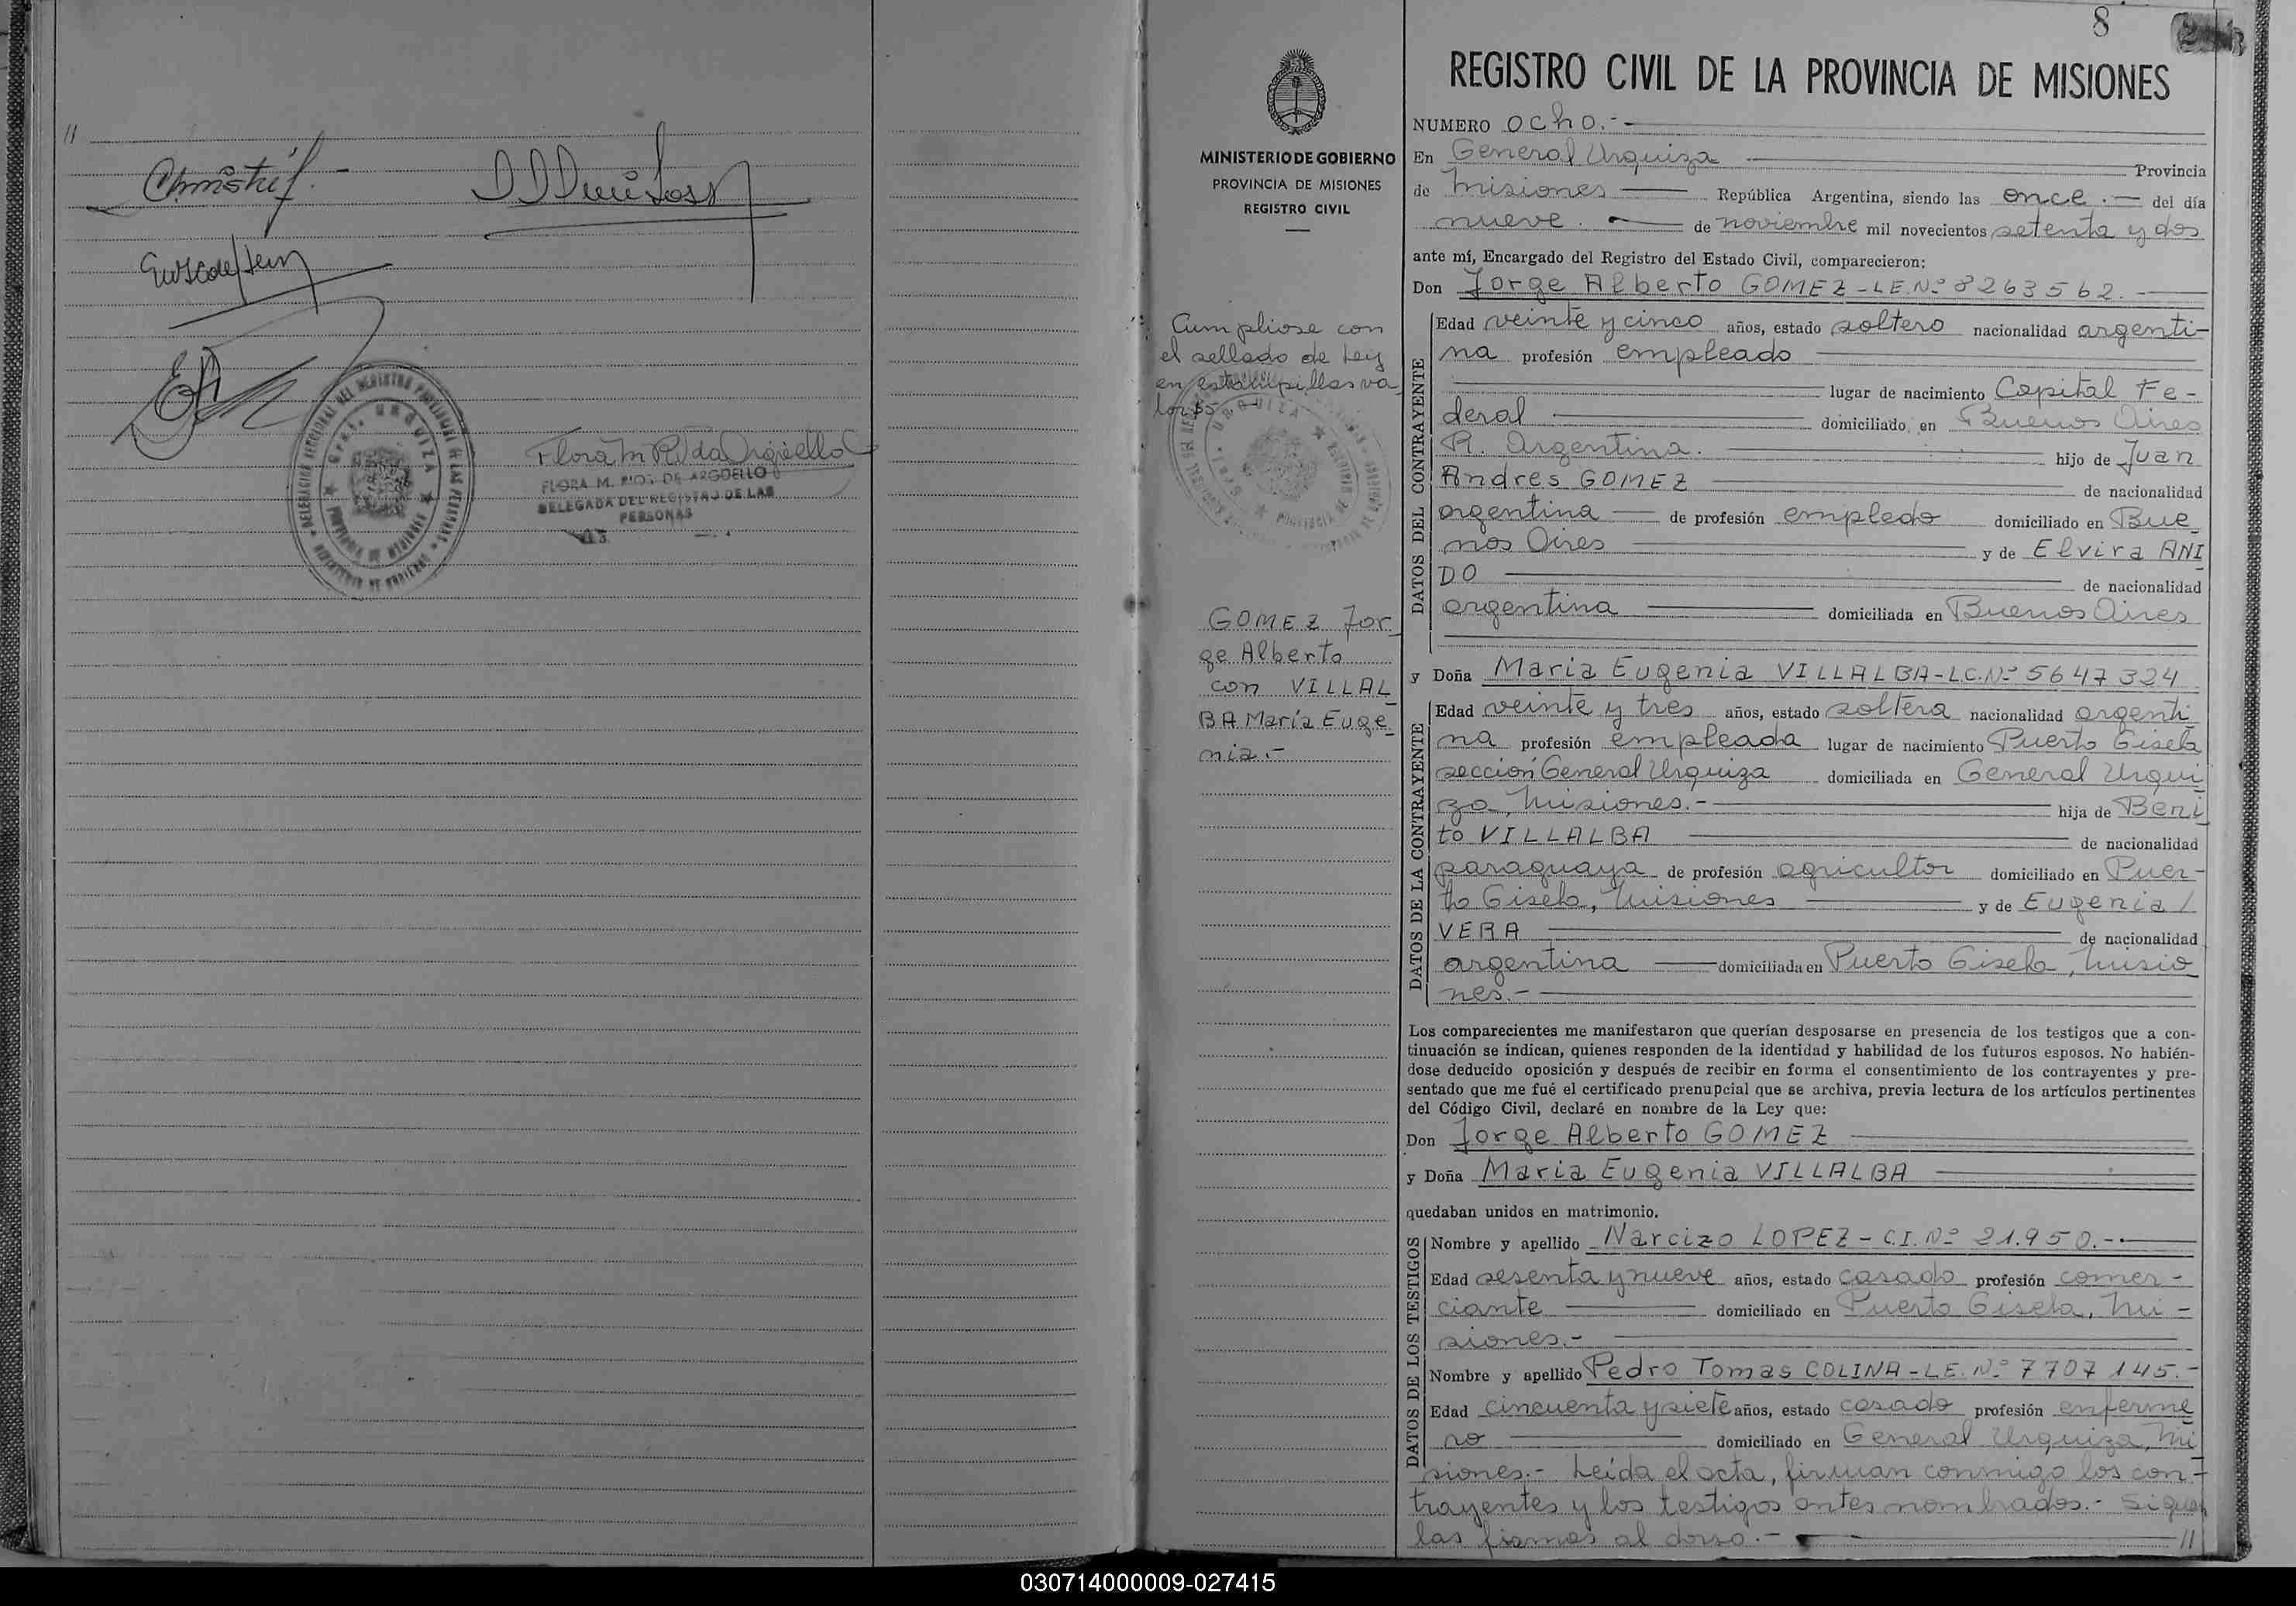 //
Flora M R. da Argüello
FLORA M. RIOS DE ARGÜELLO
DELEGADA DEL REGISTRO DE LAS
PERSONAS
8
REGISTRO CIVIL DE LA PROVINCIA DE MISIONES
MINISTERIO DE GOBIERNO
PROVINCIA DE MISIONES
REGISTRO CIVIL
Cumpliose con
el sellado de Ley
en estampillas va
lor $5
GOMEZ Jor
ge Alberto
con VILLAL
BA María Euge
nia.-
NUMERO ocho.-
En General Urquiza Provincia
de Misiones República Argentina, siendo las once.- del día
nueve. de noviembre mil novecientos setenta y dos
ante mí, Encargado del Registro del Estado Civil, comparecieron:
Don Jorge Alberto GOMEZ - L.E. Nº 8263562.-
DATOS DEL CONTRAYENTE
Edad veinte y cinco años, estado soltero nacionalidad argenti-
na profesión empleado
lugar de nacimiento Capital Fe-
deral domiciliado en Buenos Aires
R. Argentina. hijo de Juan
Andres GOMEZ de nacionalidad
argentina de profesión empledo domiciliado en Bue
nos Aires y de Elvira ANI
DO de nacionalidad
argentina domiciliada en Buenos Aires
y Doña Maria Eugenia VILLALBA - L.C. Nº 5647324
DATOS DE LA CONTRAYENTE
Edad veinte y tres años, estado soltera nacionalidad argenti
na profesión empleada lugar de nacimiento Puerto Gisela
sección General Urquiza domiciliada en General Urqui
za, Misiones.- hija de Beni
to VILLALBA de nacionalidad
paraguaya de profesión agricultor domiciliado en Puer-
to Gisela, Misiones y de Eugenia /
VERA de nacionalidad
argentina domiciliada en Puerto Gisela, Misio
nes.-
Los comparecientes me manifestaron que querían desposarse en presencia de los testigos que a con-
tinuación se indican, quienes responden de la identidad y habilidad de los futuros esposos. No habién-
dose deducido oposición y después de recibir en forma el consentimiento de los contrayentes y pre-
sentado que me fué el certificado prenupcial que se archiva, previa lectura de los artículos pertinentes
del Código Civil, declaré en nombre de la Ley que:
Don Jorge Alberto GOMEZ
y Doña Maria Eugenia VILLALBA
quedaban unidos en matrimonio.
DATOS DE LOS TESTIGOS
Nombre y apellido Narcizo LOPEZ - C.I. Nº 21.950.-
Edad sesenta y nueve años, estado casado profesión comer-
ciante domiciliado en Puerto Gisela, Mi-
siones.-
Nombre y apellido Pedro Tomas COLINA - L.E. Nº 7707145.-
Edad cincuenta y siete años, estado casado profesión enferme
ro domiciliado en General Urquiza, Mi
siones.- Leída el acta, firman conmigo los con-
trayentes y los testigos antes nombrados.- Siguen
las firmas al dorso.- //
030714000009-027415